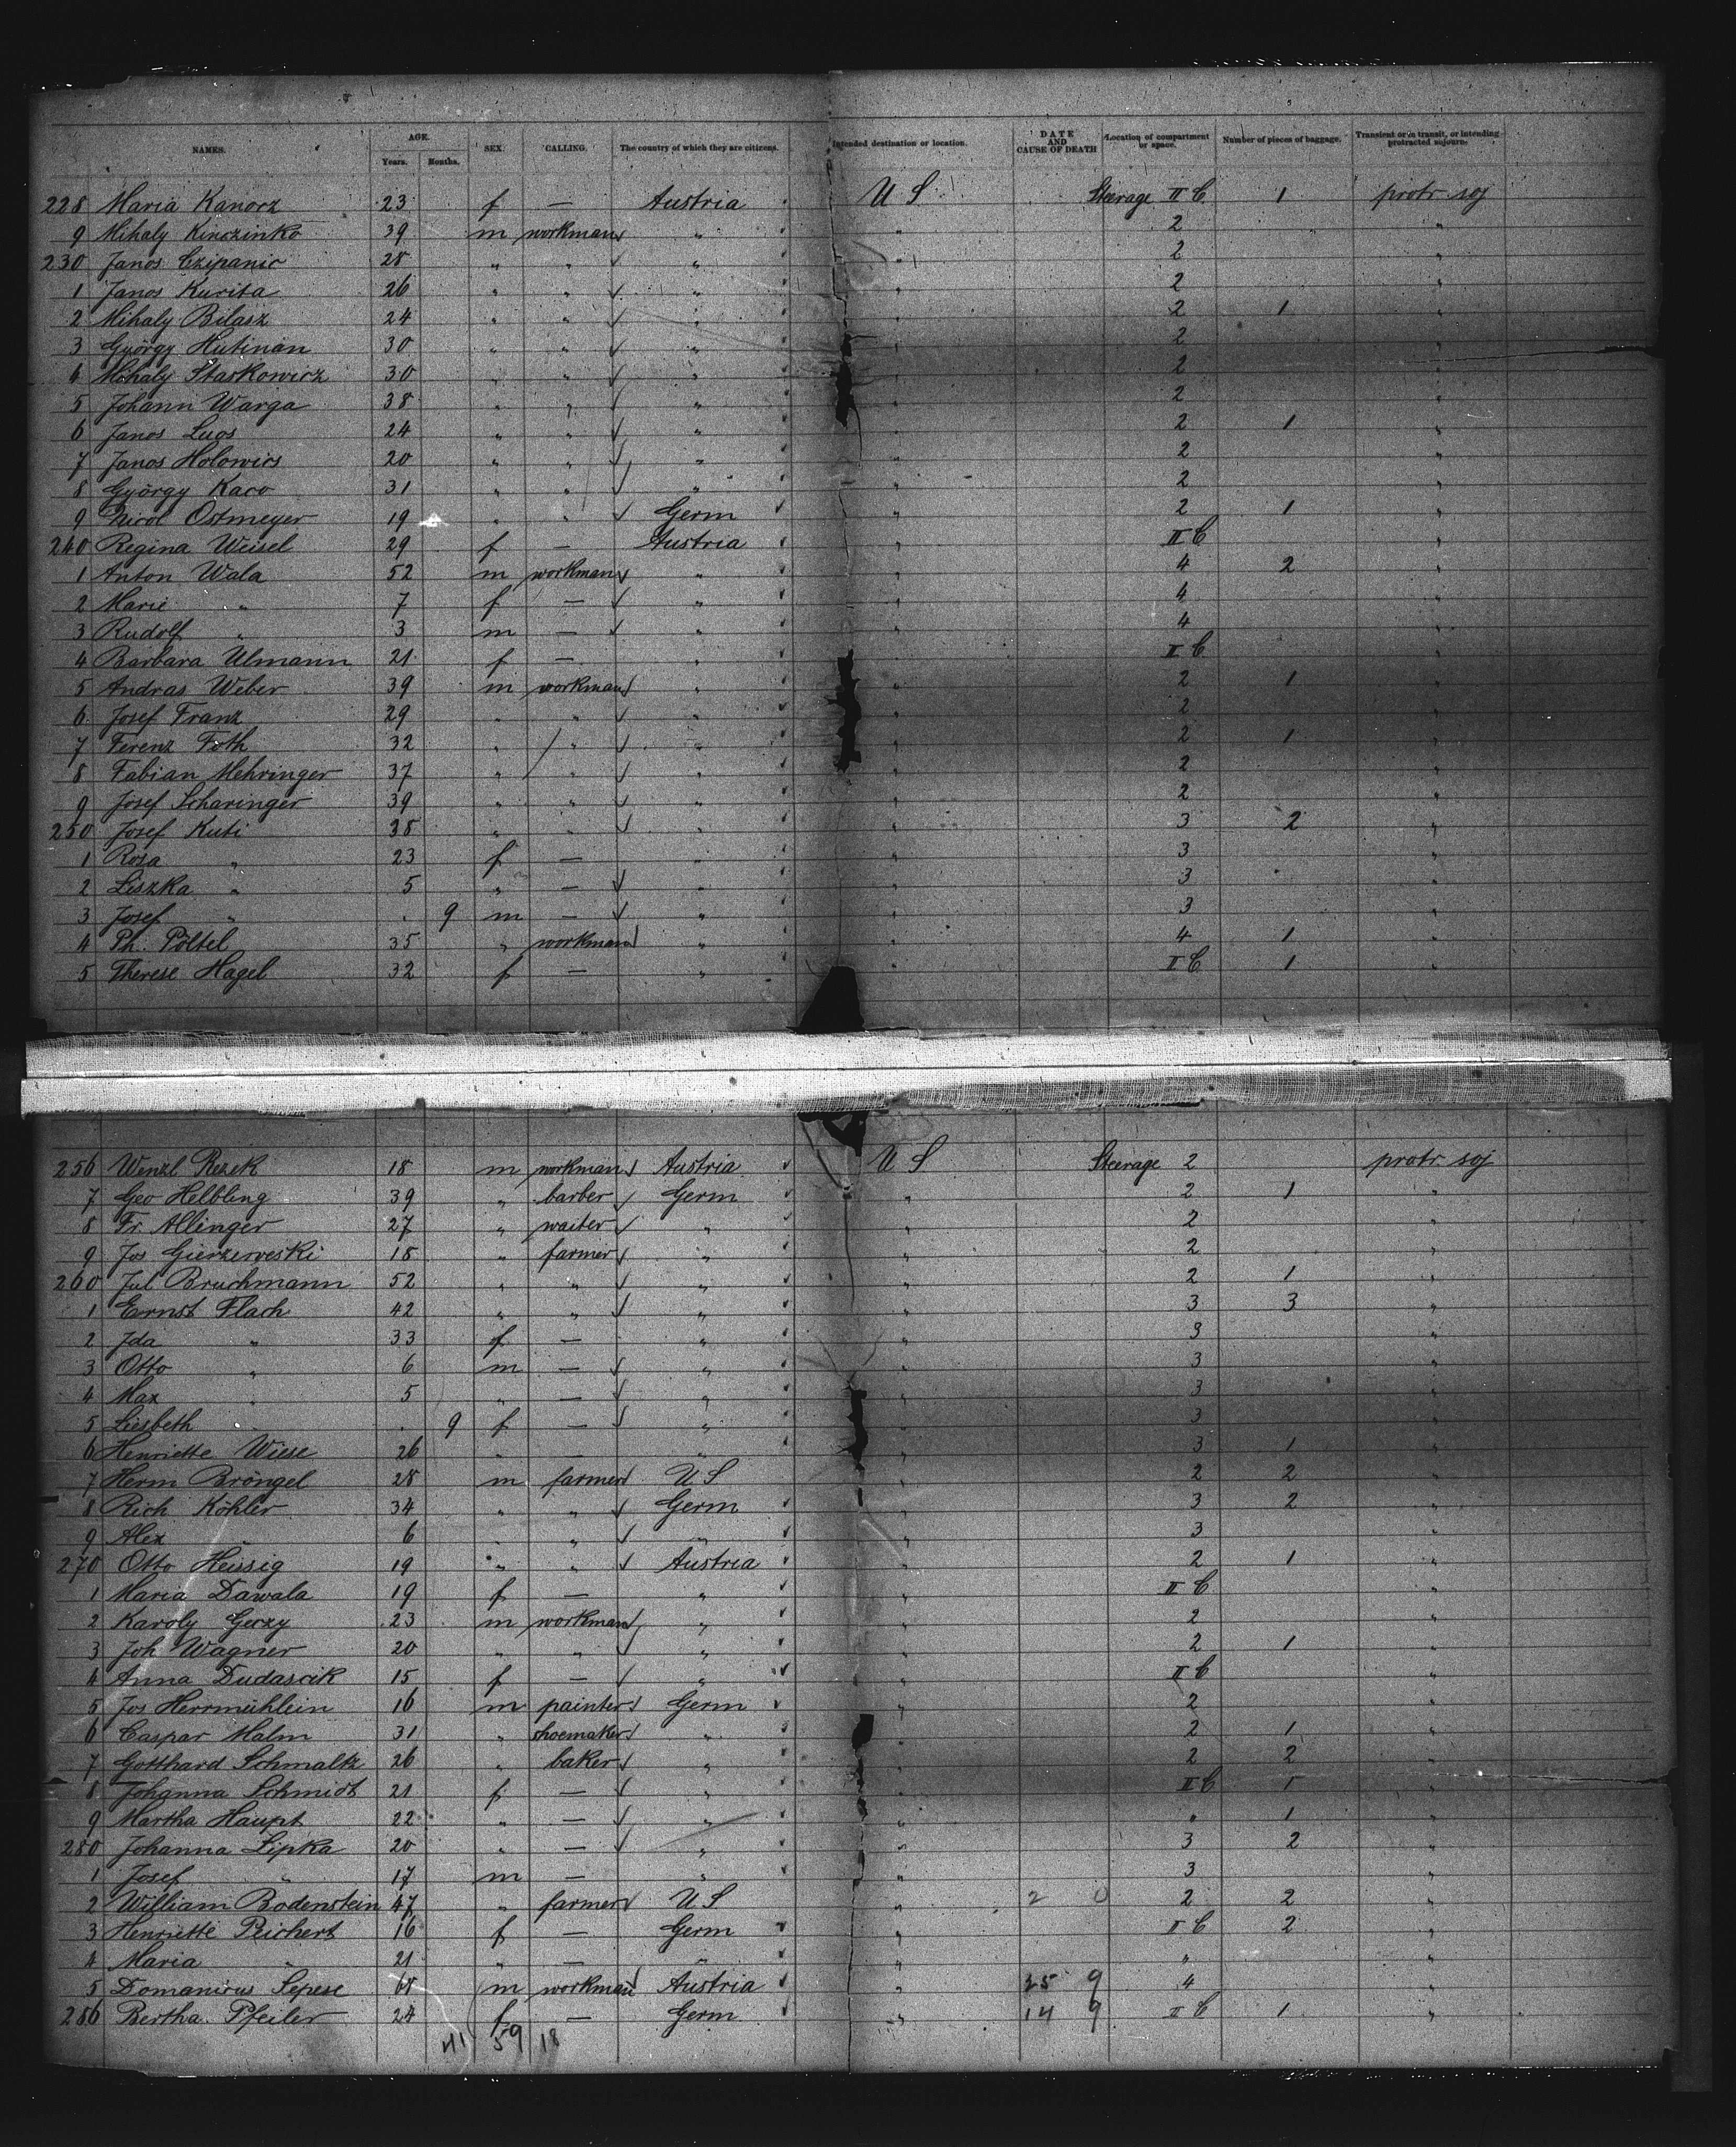 NAMES. AGE. Years. Months. SEX. CALLING. The country of which they are citizens. Intended destination or location. DATE AND CAUSE OF DEATH Location of compartment or space. Number of pieces of baggage. Transient or in transit, or intending protracted sojourn.
228 Maria Kanorz 23 f — Austria U S Steerage II C 1 protr soj
9 Mihaly Kinczinko 39 m workman " " 2 "
230 Janos Czipanic 28 " " " " 2 "
1 Janos Kurita 26 " " " " 2 "
2 Mihaly Bilasz 24 " " " " 2 1 "
3 György Hutinan 30 " " " " 2 "
4 Mihaly Staskowicz 30 " " " " 2 "
5 Johann Warga 38 " " " " 2 "
6 Janos Luos 24 " " " " 2 1 "
7 Janos Holowics 20 " " " " 2 "
8 György Kaco 31 " " " " 2 "
9 Nicol Ostmeyer 19 " " Germ " 2 1 "
240 Regina Weisel 29 f — Austria " II C "
1 Anton Wala 52 m workman " " 4 2 "
2 Marie " 7 f — " " 4 "
3 Rudolf " 3 m — " " 4 "
4 Barbara Ulmann 21 f — " " II C "
5 Andras Weber 39 m workman " " 2 1 "
6 Josef Franz 29 " " " " 2 "
7 Ferenz Foth 32 " " " " 2 1 "
8 Fabian Mehringer 37 " " " " 2 "
9 Josef Scharinger 39 " " " " 2 "
250 Josef Kuti 38 " " " " 3 2 "
1 Rosa " 23 f — " " 3 "
2 Liszka " 5 " — " " 3 "
3 Josef " . 9 m — " " 3 "
4 Ph. Pöltel 35 " workman " " 4 1 "
5 Therese Hagel 32 f — " " II C 1 "
256 Wenzl Rezek 18 m workman Austria U S Steerage 2 protr soj
7 Geo Helbling 39 " barber Germ " 2 1 "
8 Fr. Allinger 27 " waiter " " 2 "
9 Jos Gierzerveski 18 " farmer " " 2 "
260 Jul Bruchmann 52 " " " " 2 1 "
1 Ernst Flach 42 " " " " 3 3 "
2 Ida " 33 f — " " 3 "
3 Otto " 6 m — " " 3 "
4 Max " 5 " — " " 3 "
5 Liesbeth " . 9 f — " " 3 "
6 Henriette Wiese 26 " — " " 3 1 "
7 Herm Bröngel 28 m farmer U S " 2 2 "
8 Rich Köhler 34 " " Germ " 3 2 "
9 Alex " 6 " " " " 3 "
270 Otto Heissig 19 " " Austria " 2 1 "
1 Maria Dawala 19 f — " " II C "
2 Karoly Gerzy 23 m workman " " 2 "
3 Joh Wagner 20 " " " " 2 1 "
4 Anna Dudascik 15 f — " " II C "
5 Jos Herrmühlein 16 m painter Germ " 2 "
6 Caspar Malm 31 " shoemaker " " 2 1 "
7 Gotthard Schmaltz 26 " baker " " 2 2 "
8 Johanna Schmidt 21 f — " " II C 1 "
9 Martha Haupt 22 " — " " " 1 "
280 Johanna Lipka 20 " — " " 3 2 "
1 Josef " 17 m — " " 3 "
2 William Bodenstein 47 " farmer U S " 2 0 2 2 "
3 Henriette Peichert 16 f — Germ " II C 2 "
4 Maria " 21 " — " " " "
5 Domanicus Sepese m workman Austria " 25 9 4 "
286 Bertha Pfeiler 24 f — Germ " 14 9 II C 1 "
41 59 18